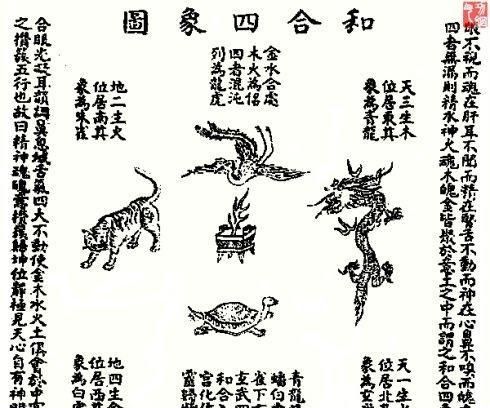 和合四象圖
眼不視而魂在肝耳不聞而精在腎舌不動而神在心鼻不嗅而
四者無漏則精水神火魂木魄金皆聚於意土之中而謂之和合四
天三生木
位居東其
象為青龍
金水合處
木火為侶
四者混沌
列為龍虎
地二生火
位居南其
象為朱雀
天一生
位居北
象為玄
青龍
雀下
玄武四
和合
宮化作
地四生金
位居西
象為白
合眼光凝耳韻調鼻息緘舌氣四大不動使金木水火土俱會於中
之攢簇五行也故曰精神魂魄意攢簇歸坤位靜極見天心自有神明